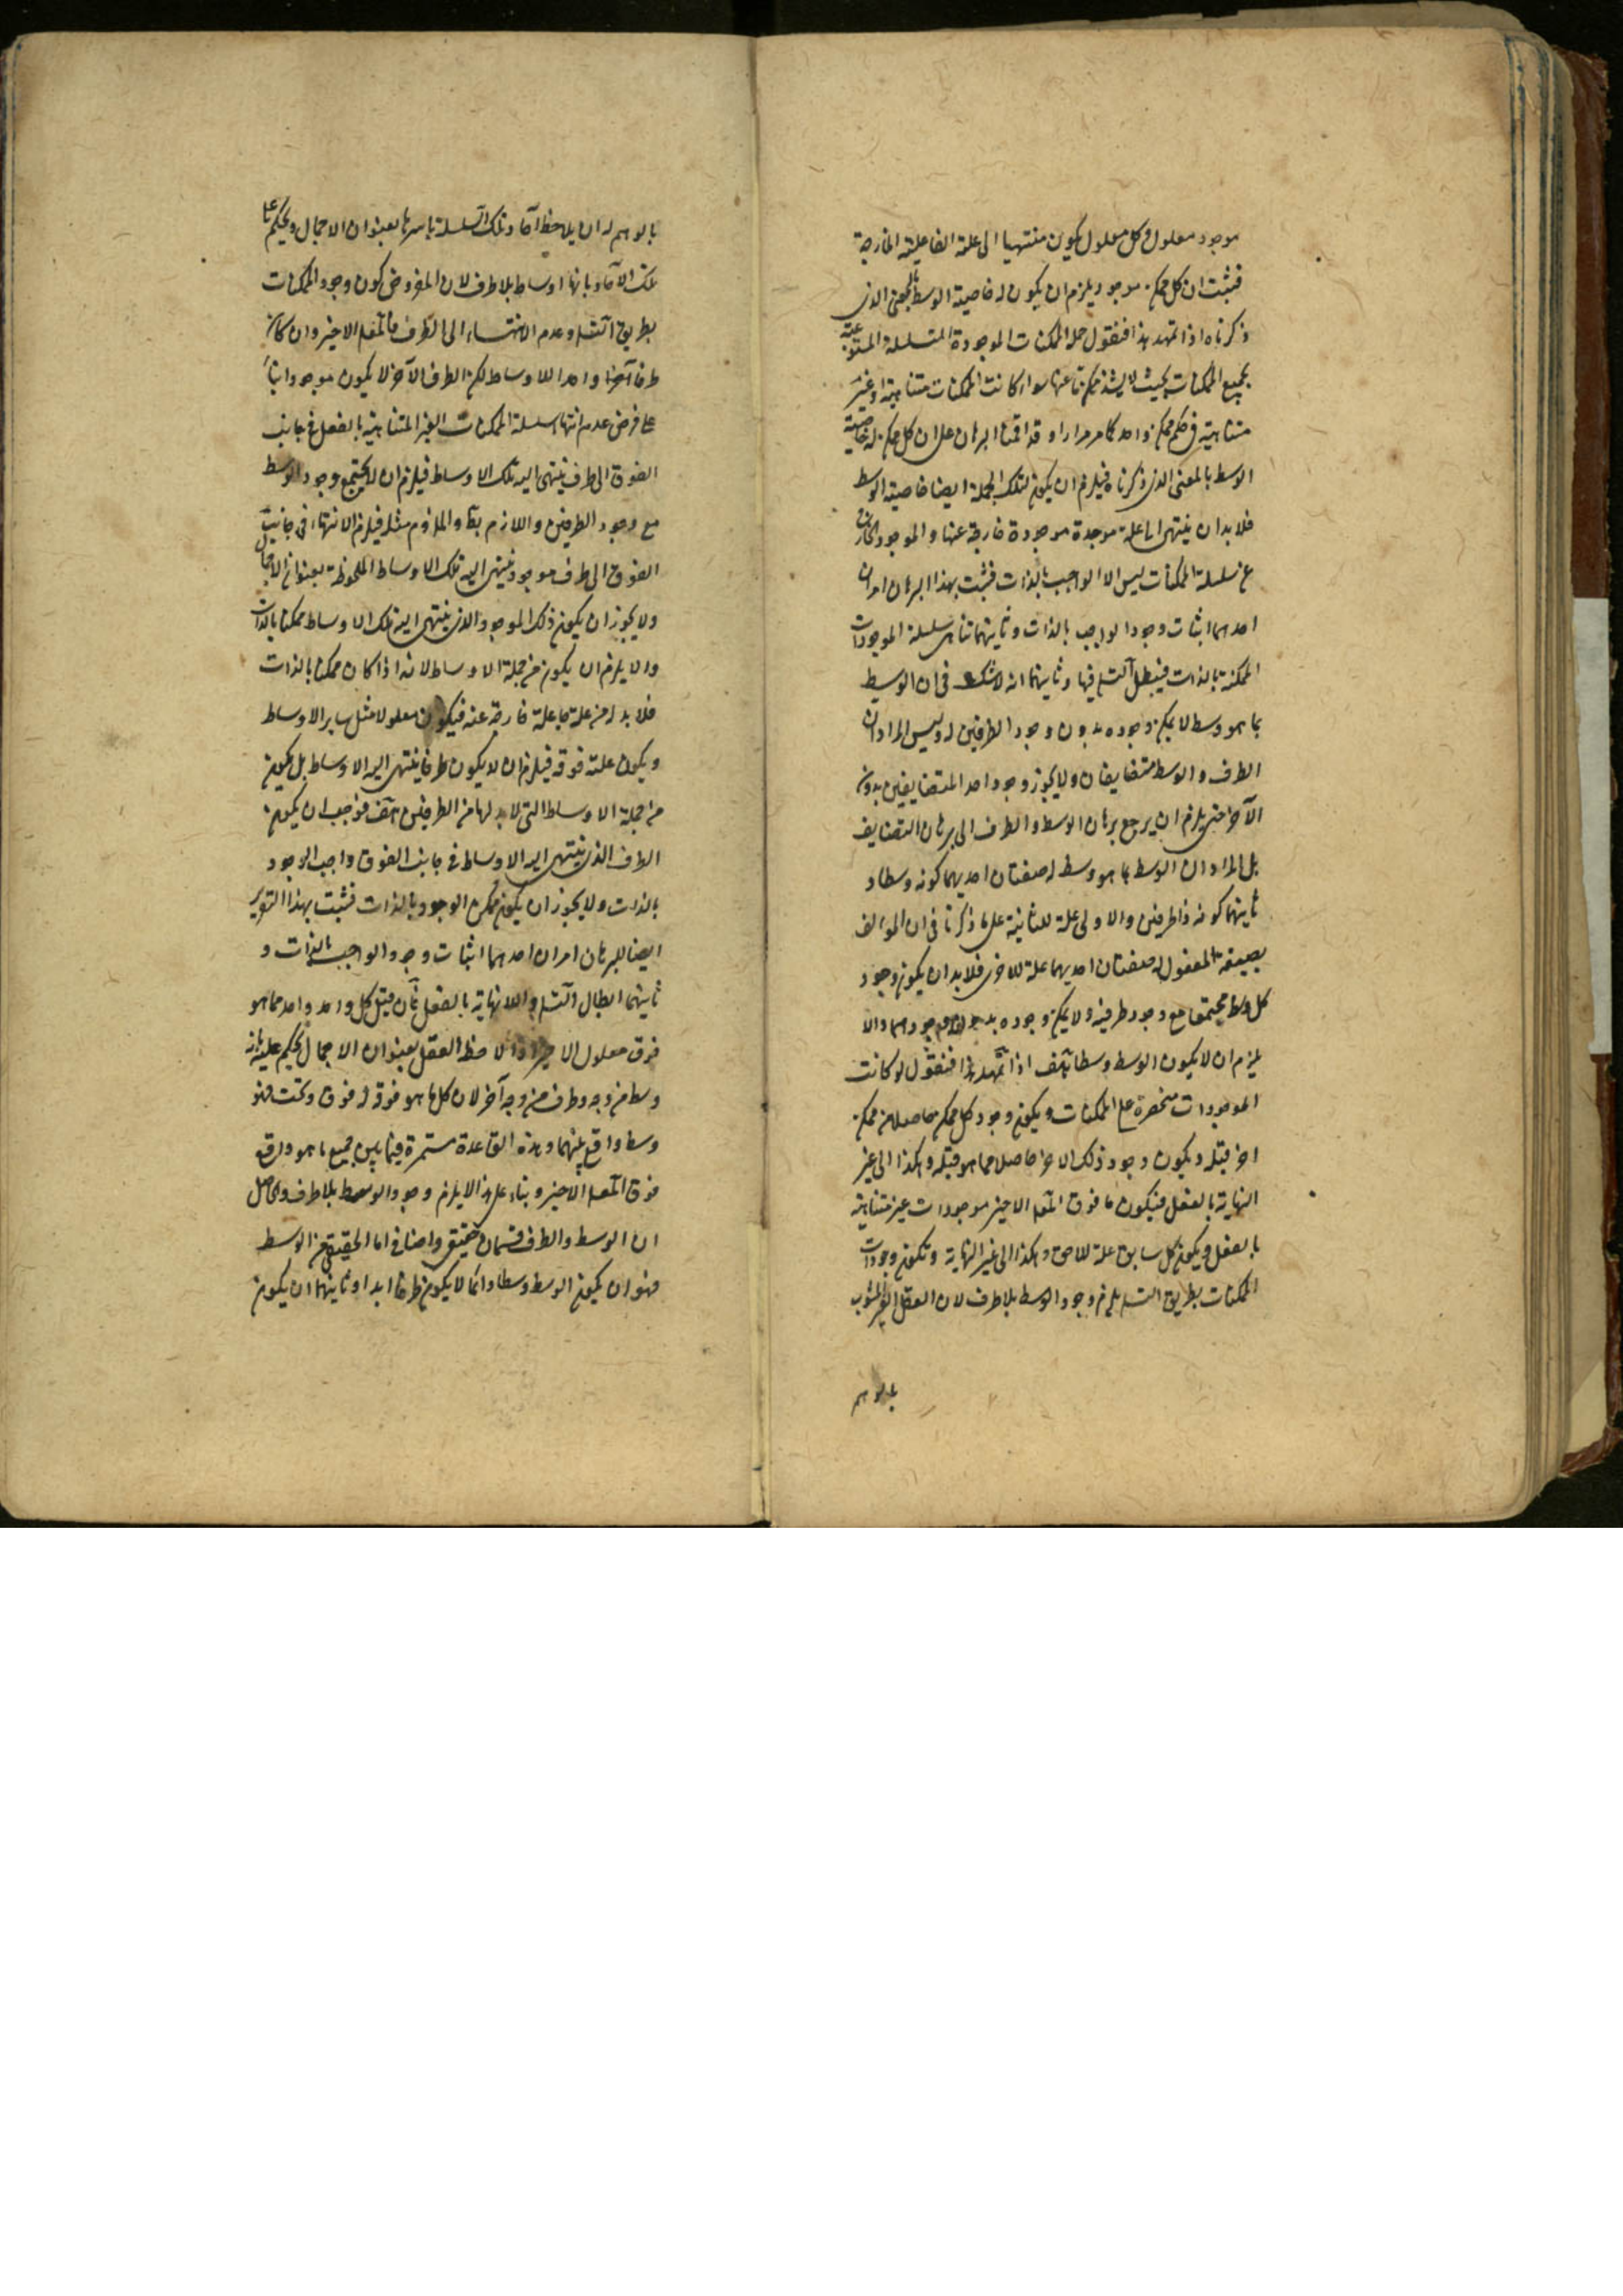 موجود معلول وكل معلول يكون منتهيا الى علته الفاعلية الخارجة
فثبت ان كل ممكن موجود يلزم ان يكون له خاصية الوسط بالمعنى الذى
ذكرناه اذا تمهد هذا فنقول جملة الممكنات الموجودة المتسلسلة المستوعبة
بجميع الممكنات بحيث لا يشذ ممكن ما عنها سواء كانت الممكنات متناهية او غير
متناهية فى حكم ممكن واحد كما مر مرارا وقد اقمنا البرهان على ان كل ممكن له خاصية
الوسط بالمعنى الذى ذكرناه فيلزم ان يكون لتلك الجملة ايضا خاصية الوسط
فلا بد ان ينتهى الى علة موجدة موجودة خارجة عنها والموجود الخارج
عن سلسلة الممكنات ليس الا الواجب بالذات فثبت بهذا البرهان امران
احدهما اثبات وجود الواجب بالذات وثانيتهما تناهى سلسلة الموجودات
الممكنة بالذات فيبطل التسلسل فيها وثانيتهما انه لا شك فى ان الوسط
بما هو وسط لا يمكن وجوده بدون وجود الطرفين له وليس المراد ان
الطرف والوسط متضايفان ولا يجوز وجود احد المتضايفين بدون
الآخر حتى يلزم ان يرجع برهان الوسط والطرف الى برهان التضايف
بل المراد ان الوسط بما هو وسط له صفتان احديهما كونه وسطا و
ثانيتهما كونه ذا طرفين والاولى علة للثانية على ما ذكرنا فى ان الموالف
بصيغة المفعول له صفتان احديهما علة للاخرى فلا بد ان يكون وجود
كل وسط مجتمعا مع وجود طرفيه ولا يمكن وجوده بدون وجودهما والا
يلزم ان لا يكون الوسط وسطا هف اذا تمهد هذا فنقول لو كانت
الموجودات منحصرة على الممكنات ويكون وجود كل ممكن حاصلا من ممكن
اخر قبله ويكون وجود ذلك الاخر حاصلا مما هو قبله وهكذا الى غير
النهاية بالفعل فيكون ما فوق المعلول الاخير موجودات غير متناهية
بالفعل ويكون كل سابق علة للاحق وهكذا الى غير النهاية وتكون وجودات
الممكنات بطريق التسلسل يلزم وجود الوسط بلا طرف لان العقل الغير المشوب
بالوهم
بالوهم له ان يلاحظ آحاد تلك السلسلة باسرها بعنوان الاجمال ويحكم على
تلك الآحاد بانها اوساط بلا طرف لان المفروض كون وجود الممكنات
بطريق التسلسل وعدم الانتهاء الى الطرف فالمعلول الاخير وان كان
طرفا آخرا واحدا للاوساط لكن الطرف الآخر لا يكون موجودا بناءً
على فرض عدم انتهاء سلسلة الممكنات الغير المتناهية بالفعل فى جانب
الفوق الى طرف ينتهى اليه تلك الاوساط فيلزم ان لا يجتمع وجود الوسط
مع وجود الطرفين واللازم بط والملزوم مثله فيلزم الانتهاء فى جانب
الفوق الى طرف موجود ينتهى اليه تلك الاوساط الملحوظة بعنوان الاجمال
ولا يجوز ان يكون ذلك الموجود الذى ينتهى اليه تلك الاوساط ممكنا بالذات
والا يلزم ان يكون من جملة الاوساط لانه اذا كان ممكنا بالذات
فلا بد له من علة جاعلة خارجة عنه فيكون معلولا مثل ساير الاوساط
ويكون علته فوقه فيلزم ان لا يكون طرفا ينتهى اليه الاوساط بل يكون
من جملة الاوساط التى لا بد لها من الطرفين هف فوجب ان يكون
الطرف الذى ينتهى اليه الاوساط فى جانب الفوق واجب الوجود
بالذات ولا يجوز ان يكون ممكن الوجود بالذات فثبت بهذا التقرير
ايضا للبرهان امران احدهما اثبات وجود الواجب بالذات و
ثانيتهما ابطال التسلسل واللانهاية بالفعل فان قيل كل واحد واحد مما هو
فوق معلول الاخير اذا لاحظ العقل بعنوان الاجمال يحكم عليه بانه
وسط من وجه وطرف من وجه آخر لان كل ما هو فوقه له فوق وتحت فهو
وسط واقع بينهما وهذه القاعدة مستمرة فيما بين جميع ما هو واقع
فوق المعلول الاخير وبناء على هذا لا يلزم وجود الوسط بلا طرف والحاصل
ان الوسط والطرف قسمان حقيقى واضافى اما الحقيقى من الوسط
فهو ان يكون الوسط وسطا دائما لا يكون طرفا ابدا وثانيتهما ان يكون